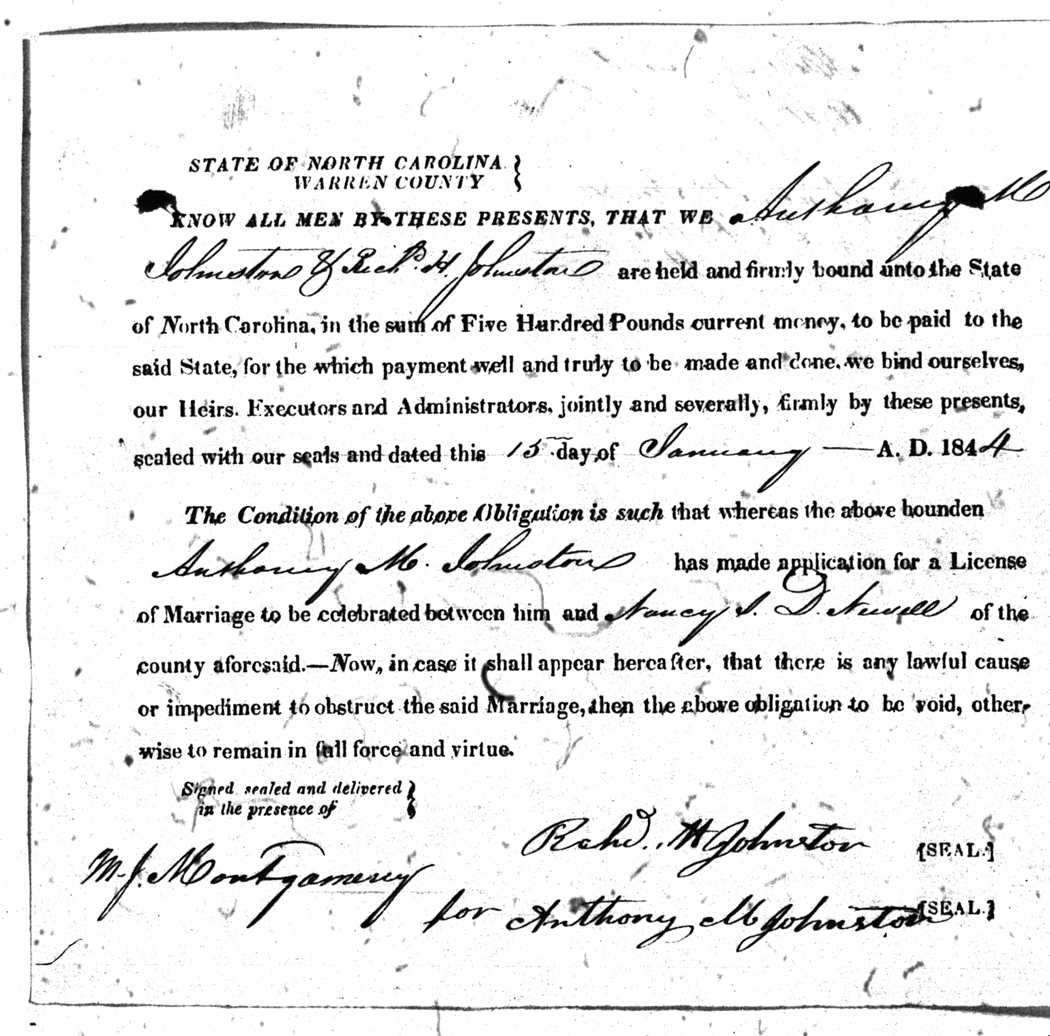 STATE OF NORTH CAROLINA }
WARREN COUNTY }
KNOW ALL MEN BY THESE PRESENTS, THAT WE Anthony M
Johnston & Richd. H. Johnston are held and firmly bound unto the State
of North Carolina, in the sum of Five Hundred Pounds current money, to be paid to the
said State, for the which payment well and truly to be made and done, we bind ourselves,
our Heirs. Executors and Administrators, jointly and severally, firmly by these presents,
sealed with our seals and dated this 15 day of January — A. D. 1844
The Condition of the above Obligation is such that whereas the above bounden
Anthony M. Johnston has made application for a License
of Marriage to be celebrated between him and Nancy S. D. Newell of the
county aforesaid.—Now, in case it shall appear hereafter, that there is any lawful cause
or impediment to obstruct the said Marriage, then the above obligation to be void, other-
wise to remain in full force and virtue.
Signed sealed and delivered }
in the presence of }
Richd. H Johnston [SEAL.]
M. J. Montgomery
for Anthony M Johnston [SEAL.]